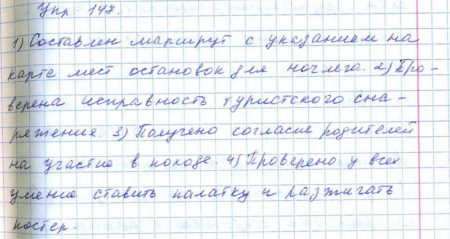 Упр. 147.
1) Составлен маршрут с указанием на
карте мест остановок для ночлега. 2) Про-
верена исправность туристского сна-
ряжение. 3) Получено согласие родителей
на участие в походе. 4) Проверено у всех
умение ставить палатку и разжигать
костер.